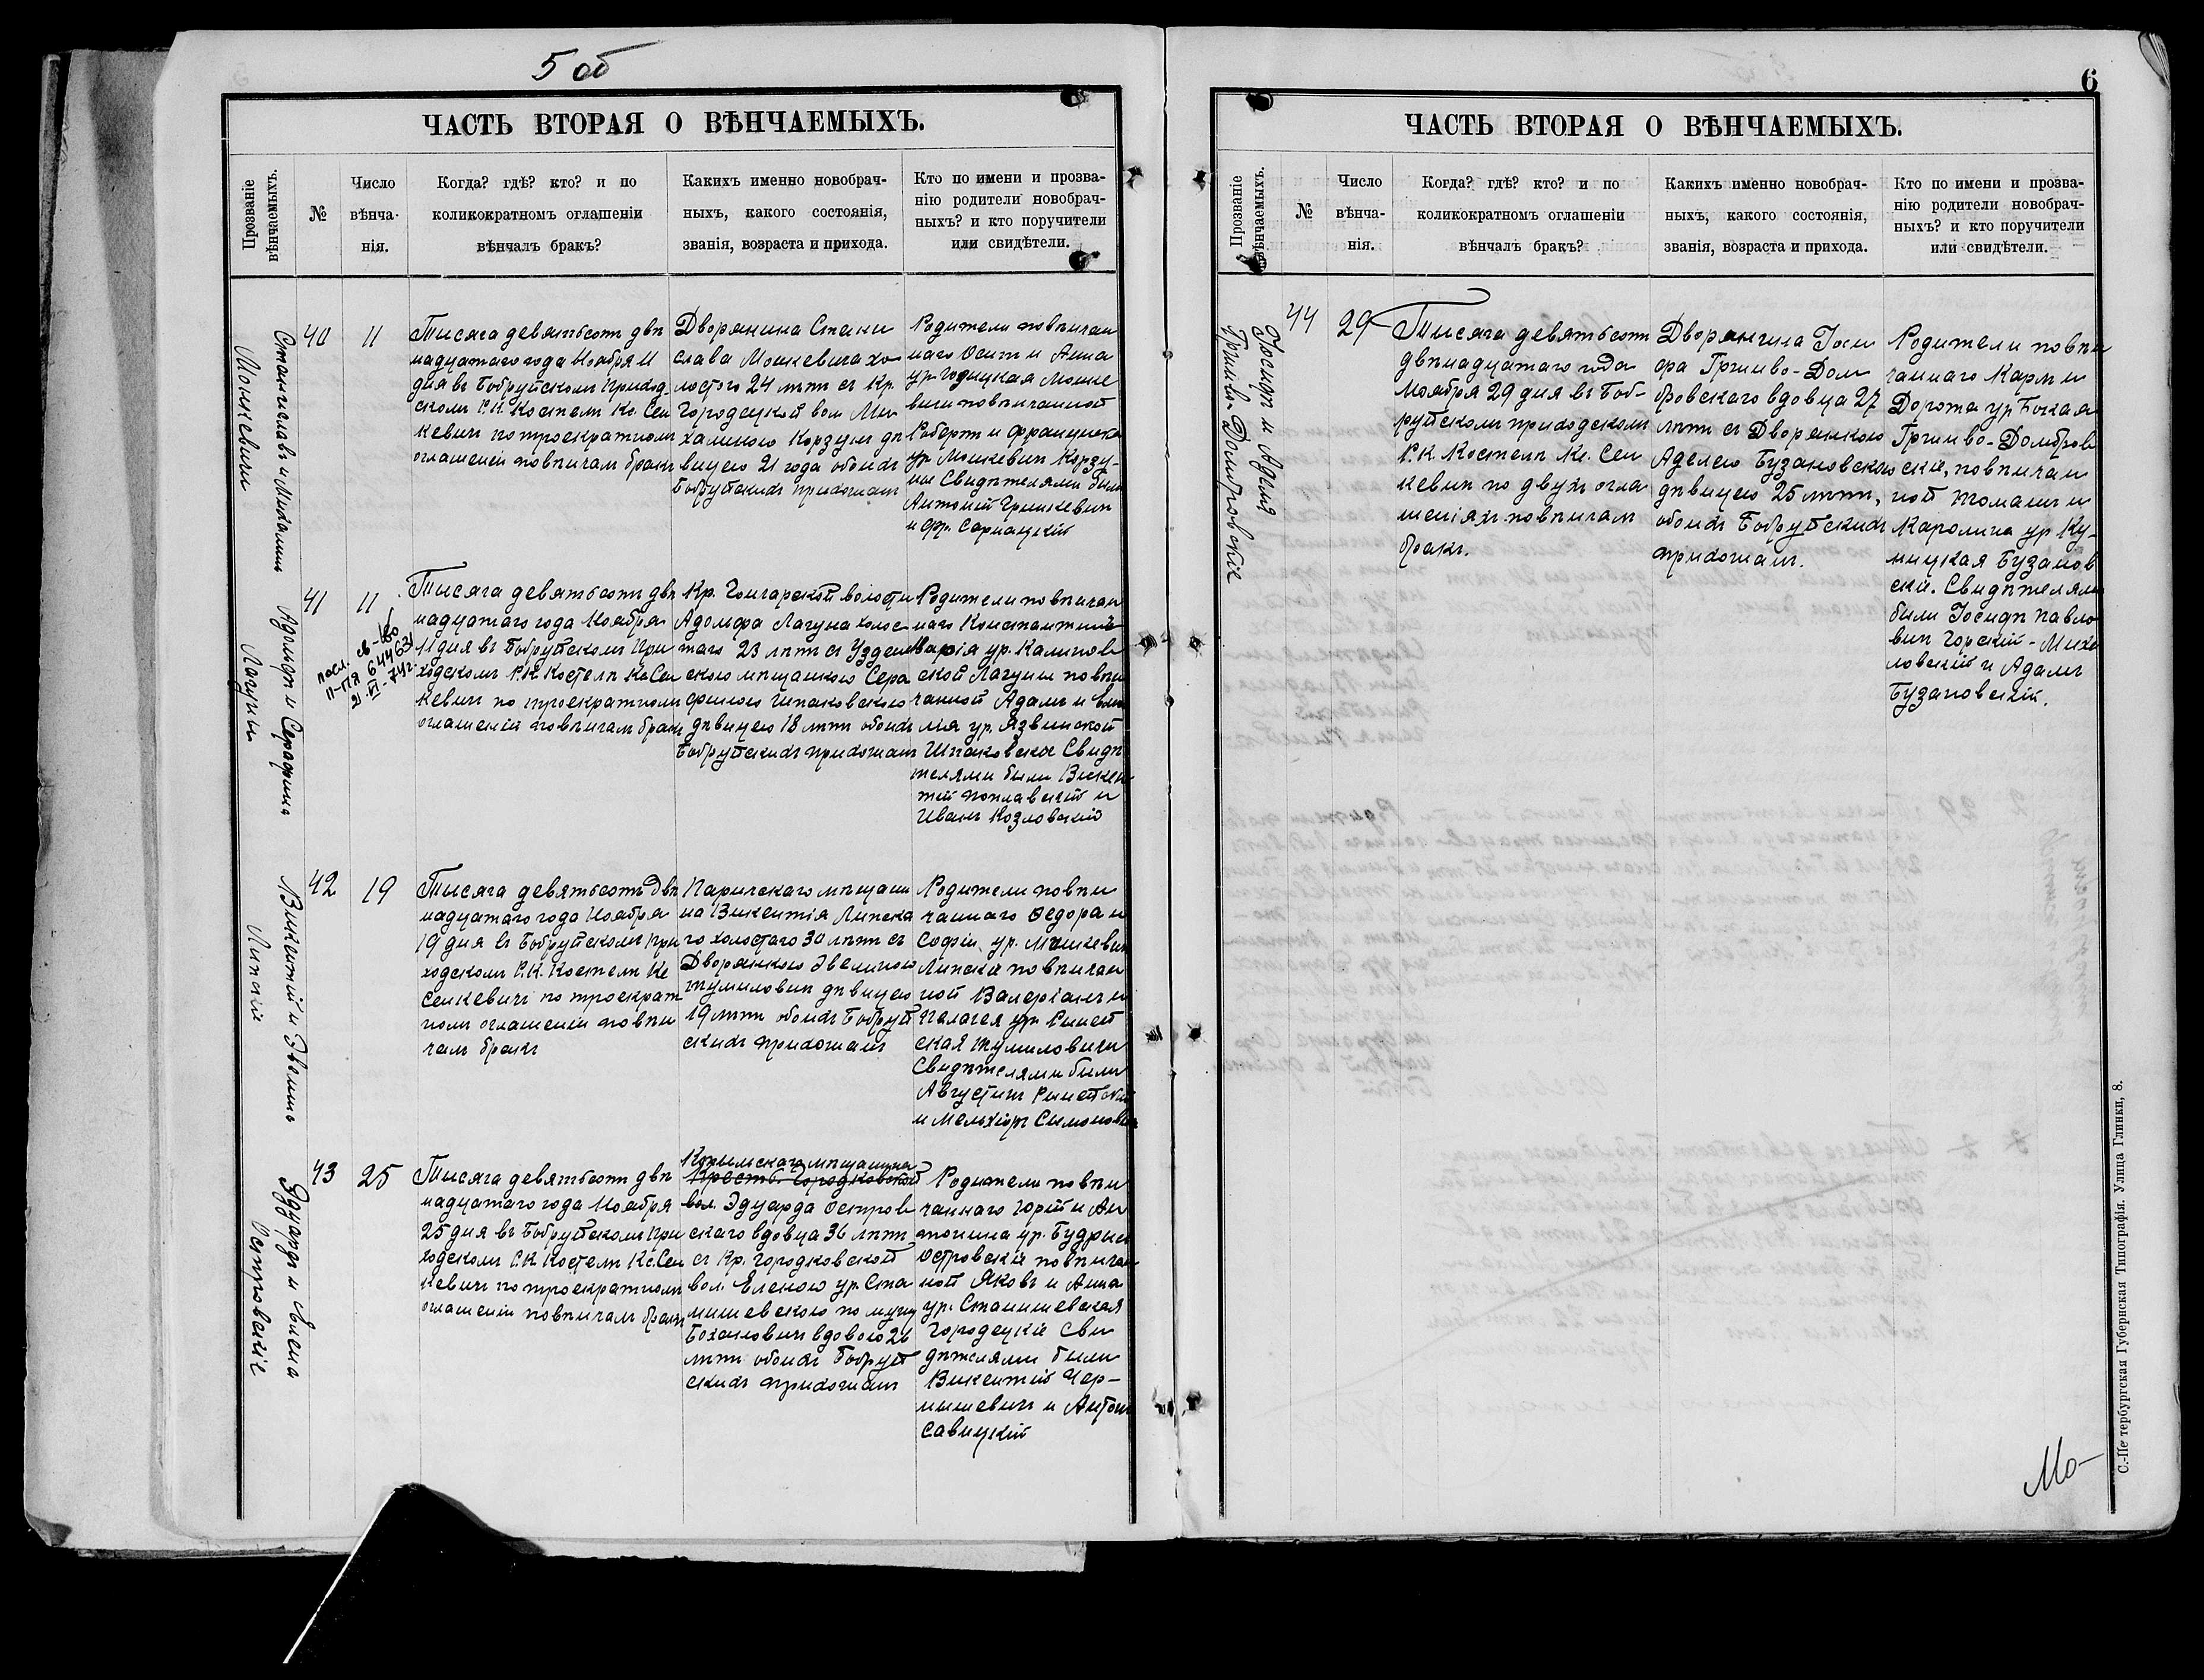 5 об
ЧАСТЬ ВТОРАЯ О ВѢНЧАЕМЫХЪ.
Прозваніе вѣнчаемыхъ.
№
Число
вѣнча-
нія.
Когда? гдѣ? кто? и по
коликократномъ оглашеніи
вѣнчалъ бракъ?
Какихъ именно новобрач-
ныхъ, какого состоянія,
званія, возраста и прихода.
Кто по имени и прозва-
нію родители новобрач-
ныхъ? и кто поручители
или свидѣтели.
Станиславъ и Михалина
Мошкевичи
40
11
Тысяча девятьсотъ двѣ
надцатаго года Ноября 11
дня въ Бобруйскомъ приход
скомъ Р.К. Костелѣ Кс. Сен
кевичъ по троекратномъ
оглашеніи повѣнчалъ бракъ
Дворянина Стани
слава Мошкевича хо
лостого 24 лѣтъ съ Кр.
Городецкой вол. Ми
халиною Корзунъ дѣ
вицею 21 года обоихъ
Бобруйскихъ прихожанъ
Родители повѣнчан
наго Осипъ и Анна
ур. Годыцкая Мошке
вичи повѣнчанной
Робертъ и Франциска
ур. Мошкевичъ Корзу-
ны Свидѣтелями были
Антоній Гришкевичъ
и Фр. Сарнацкій
Адольфъ и Серафина
Лагуны
41
11
посл.
II-ПЯ 644631
21.VI-74г.
Тысяча девятьсотъ двѣ
надцатаго года Ноября
11 дня въ Бобруйскомъ При
ходскомъ Р.К. Костелѣ Кс. Сен
кевичъ по троекратномъ
оглашеніи повѣнчалъ бракъ
Кр. Гончарской волости
Адольфа Лагуна холос
таго 23 лѣтъ съ Узден
скою мѣщанкою Сера
финою Шпаковскою
дѣвицею 18 лѣтъ обоихъ
Бобруйскихъ прихожанъ
Родители повѣнчан
наго Константинъ
Марія ур. Калинов
ской Лагуны повѣн
чанной Адамъ и Еми
лія ур. Язвинской
Шпаковскіе Свидѣ
телями были Викен
тій Поплавскій и
Иванъ Козловскій
Викентій и Эвелина
Липскіе
42
19
Тысяча девятьсотъ двѣ
надцатаго года Ноября
19 дня въ Бобруйскомъ При
ходскомъ Р.К. Костелѣ Кс
Сенкевичъ по троекрат
номъ оглашеніи повѣн
чалъ бракъ
Паричскаго мѣщани
на Викентія Липска
го холостаго 30 лѣтъ съ
Дворянкою Эвелиною
Тумиловичъ дѣвицею
19 лѣтъ обоихъ Бобруй
скихъ прихожанъ
Родители повѣн
чаннаго Ѳедора и
Софіи ур. Мошкевичъ
Липскіе повѣнчан
ной Валеріанъ и
Пелагея ур. Рыней
ская Тумиловичи
Свидѣтелями были
Августинъ Рынейскій
и Мельхіоръ Сымонович
Эдуардъ и Елена
Островскіе
43
25
Тысяча девятьсотъ двѣ
надцатаго года Ноября
25 дня въ Бобруйскомъ При
ходскомъ Р.К. Костелѣ Кс. Сен
кевичъ по троекратномъ
оглашеніи повѣнчалъ бракъ
мѣщанина
Крестъ. Городковской
вол. Эдуарда Островс
скаго вдовца 36 лѣтъ
съ Кр. Городковской
вол. Еленою ур. Ста
нишевскою по мужу
Бохановичъ вдовою 26
лѣтъ обоихъ Бобруй
скихъ прихожанъ
Родители повѣн
чаннаго Юрій и Ан
тонина ур. Будрыс
Островскіе повѣнчан
ной Яковъ и Анна
ур. Станишевская
Городецкіе Сви
дѣтелями были
Викентій Чер-
нышевичъ и Антон
Савицкій
6
ЧАСТЬ ВТОРАЯ О ВѢНЧАЕМЫХЪ.
Прозваніе вѣнчаемыхъ.
№
Число
вѣнча-
нія.
Когда? гдѣ? кто? и по
коликократномъ оглашеніи
вѣнчалъ бракъ?
Какихъ именно новобрач-
ныхъ, какого состоянія,
званія, возраста и прихода.
Кто по имени и прозва-
нію родители новобрач-
ныхъ? и кто поручители
или свидѣтели.
Іосифъ и Аделя
Гринево-Домбровскіе
44
29
Тысяча девятьсотъ
двѣнадцатаго года
Ноября 29 дня въ Боб-
руйскомъ приходскомъ
Р.К. Костелѣ Кс. Сен
кевичъ по двухъ огла
шеніяхъ повѣнчалъ
бракъ.
Дворянина Іоси
фа Гринево-Дом
бровскаго вдовца 27
лѣтъ съ Дворянкою
Аделею Бузановскою
дѣвицею 25 лѣтъ,
обоихъ Бобруйскихъ
прихожанъ.
Родители повѣн
чаннаго Карлъ и
Дорота ур
Гринево-Домбров
скіе, повѣнчан
ной Томашъ и
Каролина ур Ку-
ницкая Бузанов
скіе. Свидѣтелями
были Іосифъ Павло
вичъ Горскій-Миха
ловскій и Адамъ
Бузановскій.
С.-Петербургская Губернская Типографія. Улица Глинки, 8.